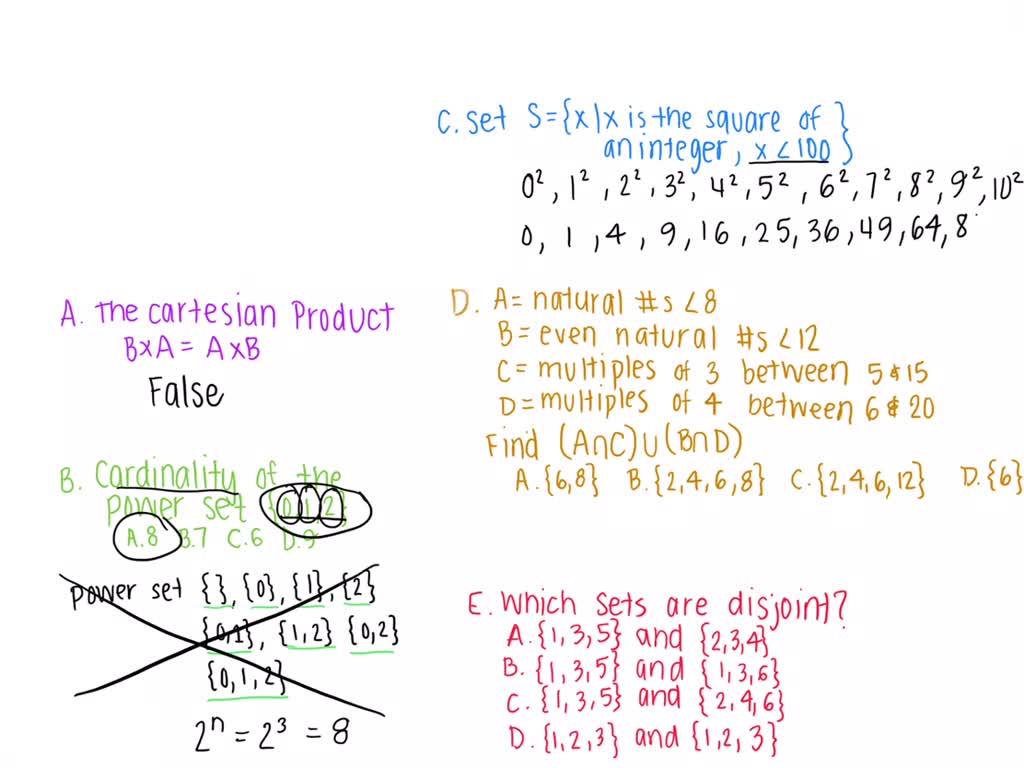 C. Set S={x|x is the square of
an integer, x<100}
0², 1², 2², 3², 4², 5², 6², 7², 8², 9², 10²
0, 1, 4, 9, 16, 25, 36, 49, 64, 8
A. The Cartesian Product
B×A = A×B
False
B. Cardinality of the
power set {0,1,2}
A.8 B.7 C.6 D.9
Power set {}, {0}, {1}, {2}
{0,1}, {1,2} {0,2}
{0,1,2}
2ⁿ = 2³ = 8
D. A= natural #s <8
B= even natural #s <12
C= multiples of 3 between 5 & 15
D= multiples of 4 between 6 & 20
Find (A∩C)∪(B∩D)
A.{6,8} B.{2,4,6,8} C.{2,4,6,12} D.{6}
E. Which sets are disjoint?
A.{1,3,5} and {2,3,4}
B.{1,3,5} and {1,3,6}
C.{1,3,5} and {2,4,6}
D.{1,2,3} and {1,2,3}